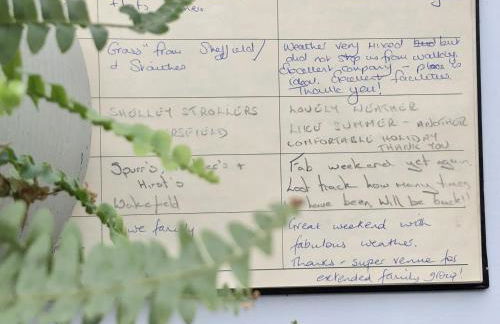 Grass" from Sheffield/
& Staithes
Weather very mixed but
did not stop us from walking.
Excellent company - place is
ideal. Excellent facilities.
Thank you!
SHELLEY STROLLERS
LOVELY WEATHER
LIKE SUMMER - ANOTHER
COMFORTABLE HOLIDAY
THANK YOU
Spurr's, +
Hirst's
Wakefield
Fab weekend yet again
Lost track how many times
have been. Will be back!!
family
Great weekend with
fabulous weather.
Thanks - super venue for
extended family group!